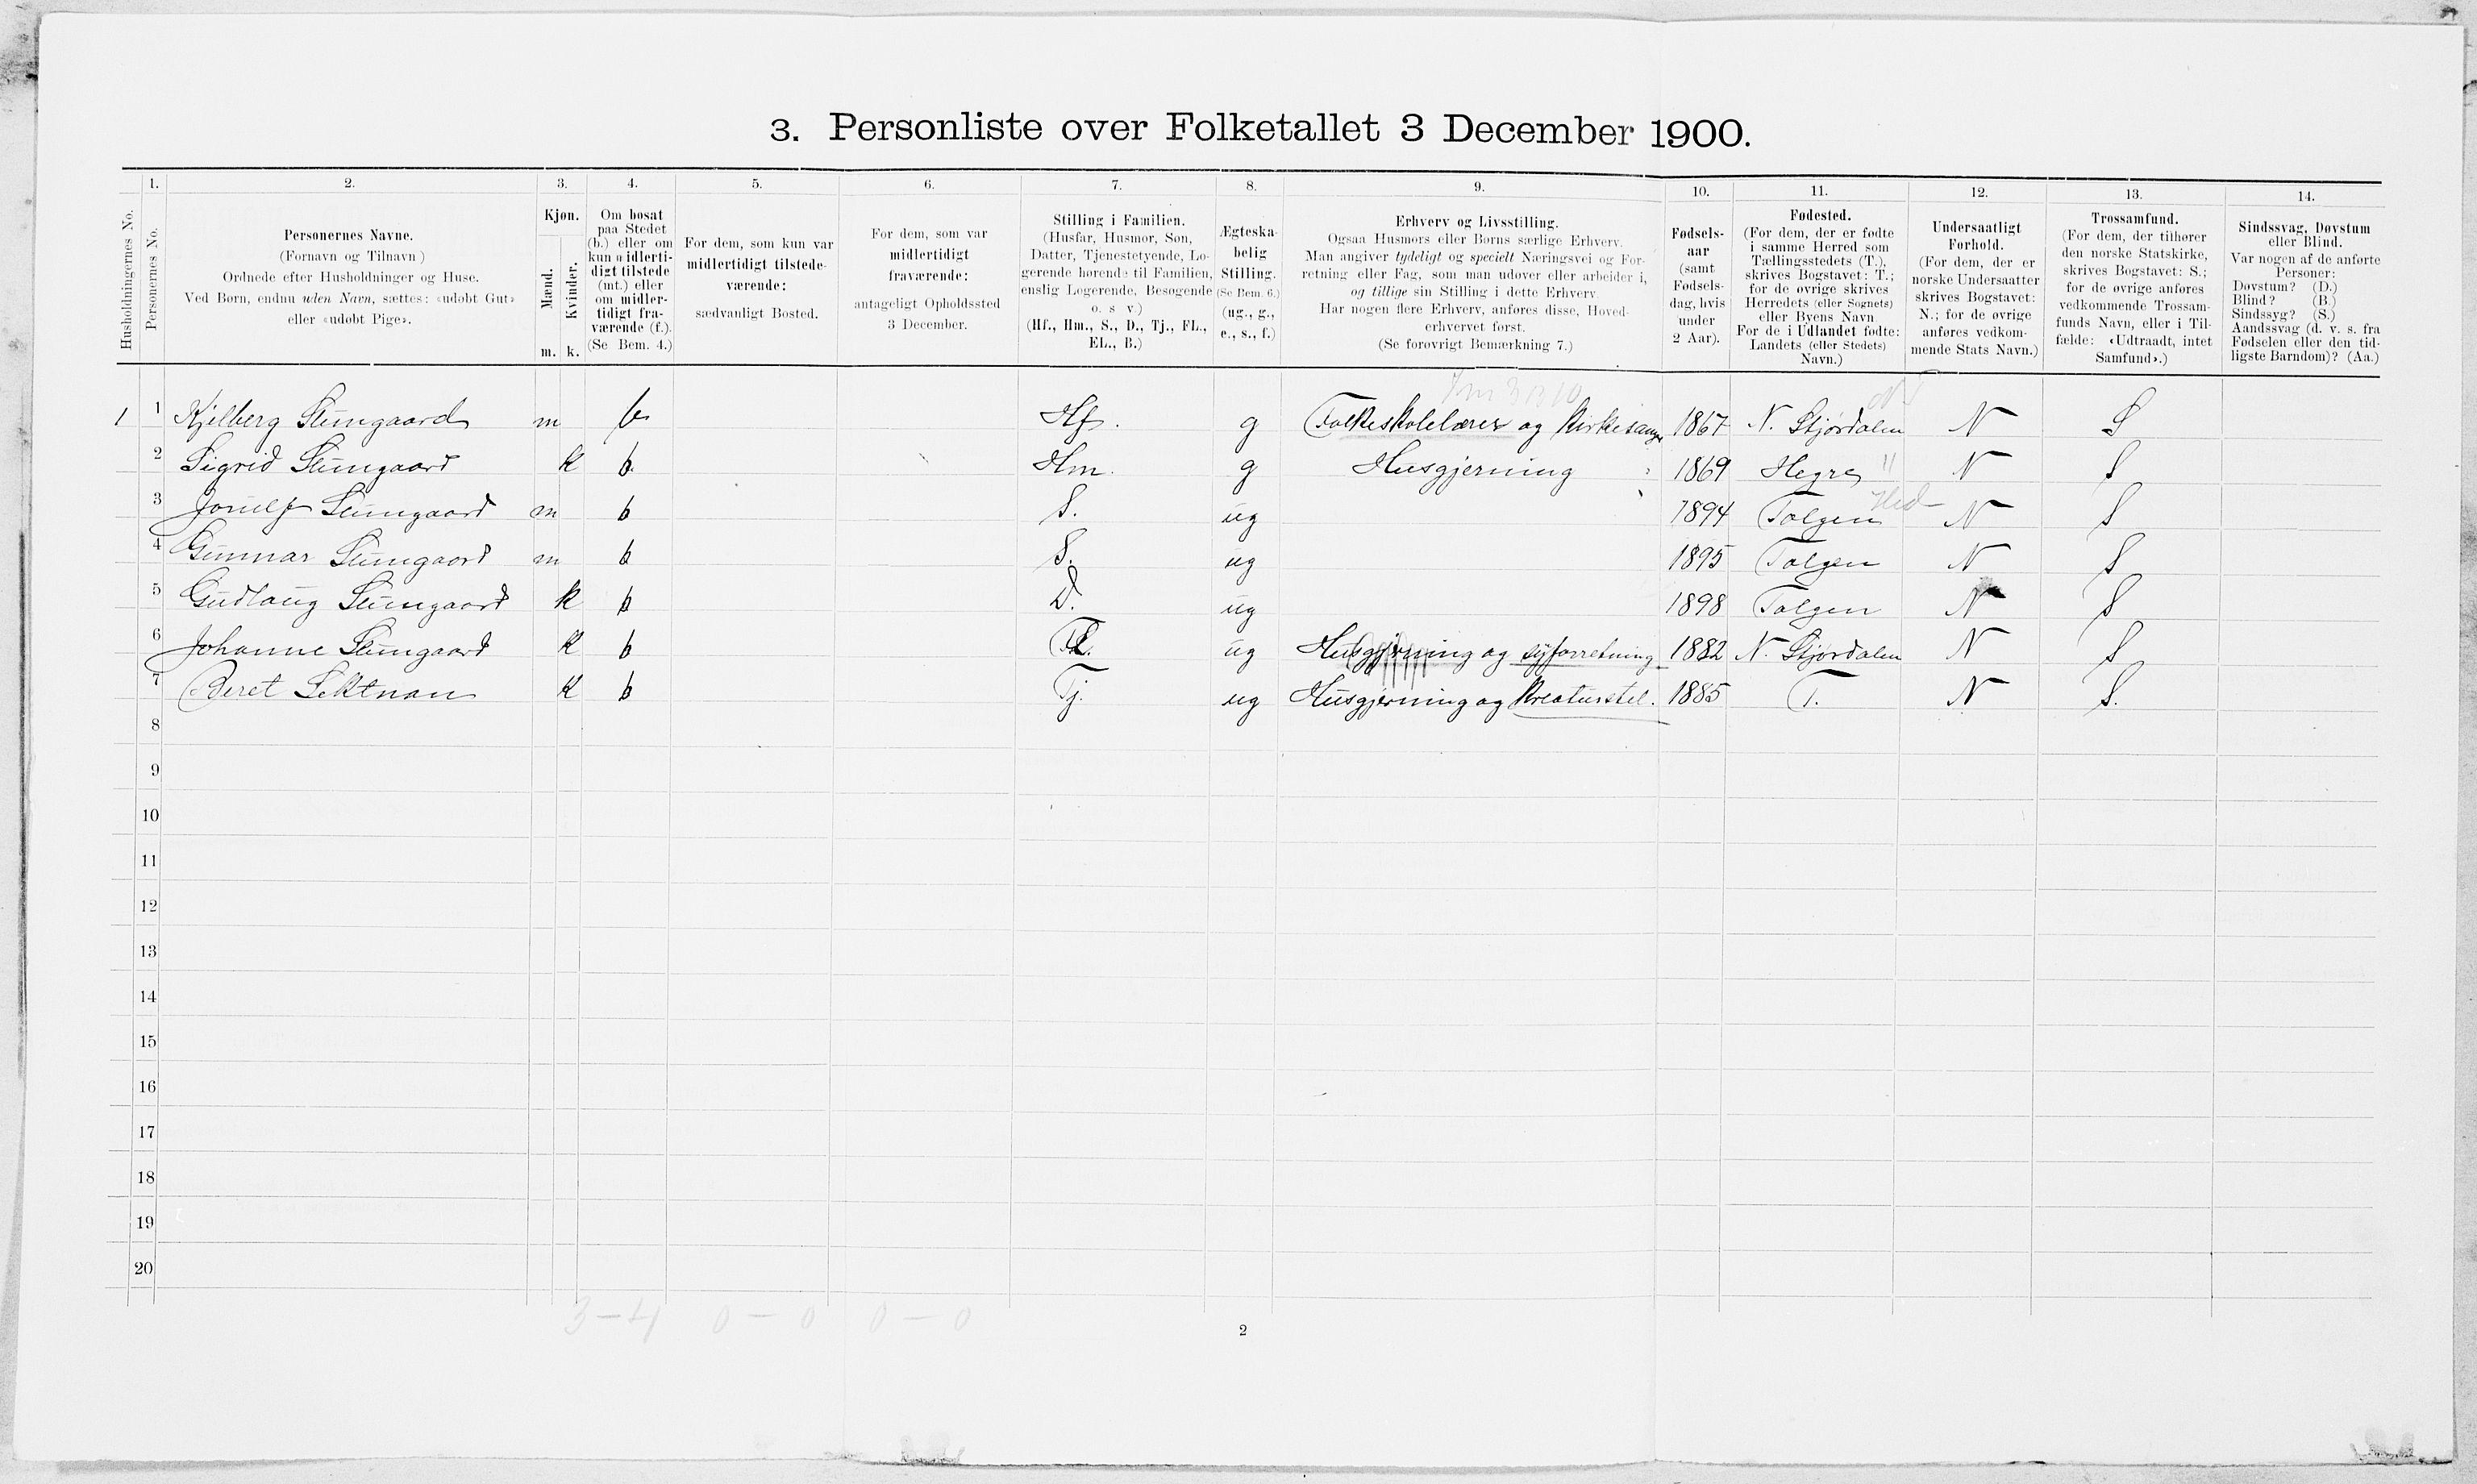 3. Personliste over Folketallet 3 December 1900.
1. 2. 3. 4. 5. 6. 7. 8. 9. 10. 11. 12. 13. 14.
Husholdningernes No.
Personernes No.
Personernes Navne.
(Fornavn og Tilnavn)
Ordnede efter Husholdninger og Huse.
Ved Børn, endnu uden Navn, sættes: «udøbt Gut»
eller «udøbt Pige».
Kjøn.
Mænd.
Kvinder.
m. k.
Om bosat
paa Stedet
(b.) eller om
kun midlerti-
digt tilstede
(mt.) eller
om midler-
tidigt fra-
værende (f.).
(Se Bem. 4.)
For dem, som kun var
midlertidigt tilstede-
værende:
sædvanligt Bosted.
For dem, som var
midlertidigt
fraværende:
antageligt Opholdssted
3 December.
Stilling i Familien.
(Husfar, Husmor, Søn,
Datter, Tjenestetyende, Lo-
gerende hørende til Familien,
enslig Logerende, Besøgende
o. s v.)
(Hf., Hm., S., D., Tj., FL.,
EL., B.)
Ægteska-
belig
Stilling.
(Se Bem. 6.)
(ug., g.,
e., s., f.)
Erhverv og Livsstilling.
Ogsaa Husmors eller Børns særlige Erhverv.
Man angiver tydeligt og specielt Næringsvei og For-
retning eller Fag, som man udøver eller arbeider i,
og tillige sin Stilling i dette Erhverv.
Har nogen flere Erhverv, anføres disse, Hoved-
erhvervet først.
(Se forøvrigt Bemærkning 7.)
Fødsels-
aar
(samt
Fødsels-
dag, hvis
under
2 Aar).
Fødested.
(For dem, der er fødte
i samme Herred som
Tællingsstedets (T.),
skrives Bogstavet: T.;
for de øvrige skrives
Herredets (eller Sognets)
eller Byens Navn.
For de i Udlandet fødte:
Landets (eller Stedets)
Navn.)
Undersaatligt
Forhold.
(For dem, der er
norske Undersaatter
skrives Bogstavet:
N.; for de øvrige
anføres vedkom-
mende Stats Navn.)
Trossamfund.
(For dem, der tilhører
den norske Statskirke,
skrives Bogstavet: S.;
for de øvrige anføres
vedkommende Trossam-
funds Navn, eller i Til-
fælde: «Udtraadt, intet
Samfund».)
Sindssvag, Døvstum
eller Blind.
Var nogen af de anførte
Personer:
Døvstum? (D.)
Blind? (B.)
Sindssyg? (S.)
Aandssvag (d. v. s. fra
Fødselen eller den tid-
ligste Barndom)? (Aa.)
1 1 Kjelberg m b Hf. g Folkeskolelærer og Kirkesanger 1867 N. Stjørdalen N S
2 Sigrid k b. Hm. g Husgjerning 1869 Hegre " N S
3 m b S. ug 1894 Tolgen Hed N S
4 Gunnar m b S. ug 1895 Tolgen N S
5 Gudlaug k b D. ug 1898 Tolgen N S
6 Johanne k b ug Husgjerning og syforretning 1882 N. Stjørdalen N S
7 Beret k b Tj. ug Husgjerning og Kreaturstel. 1885 T. N S.
8
9
10
11
12
13
14
15
16
17
18
19
20
3 – 4 0 – 0 0 – 0
2